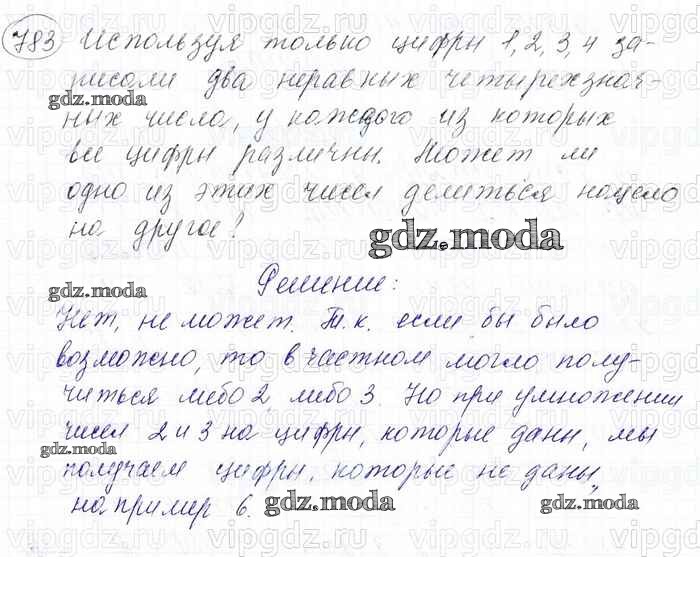 783 Используя только цифры 1, 2, 3, 4 за-
писали два неравных четырехзнач-
gdz.moda
ных числа, у каждого из которых
все цифры различны. Может ли
одно из этих чисел делиться нацело
на другое?
gdz.moda
Решение:
gdz.moda
Нет, не может. Т.к. если бы было
возможно, то в частном могло полу-
читься либо 2 либо 3. Но при умножении
чисел 2 и 3 на цифры, которые даны, мы
gdz.moda
получаем цифры, которые не даны,
например 6.
gdz.moda
gdz.moda